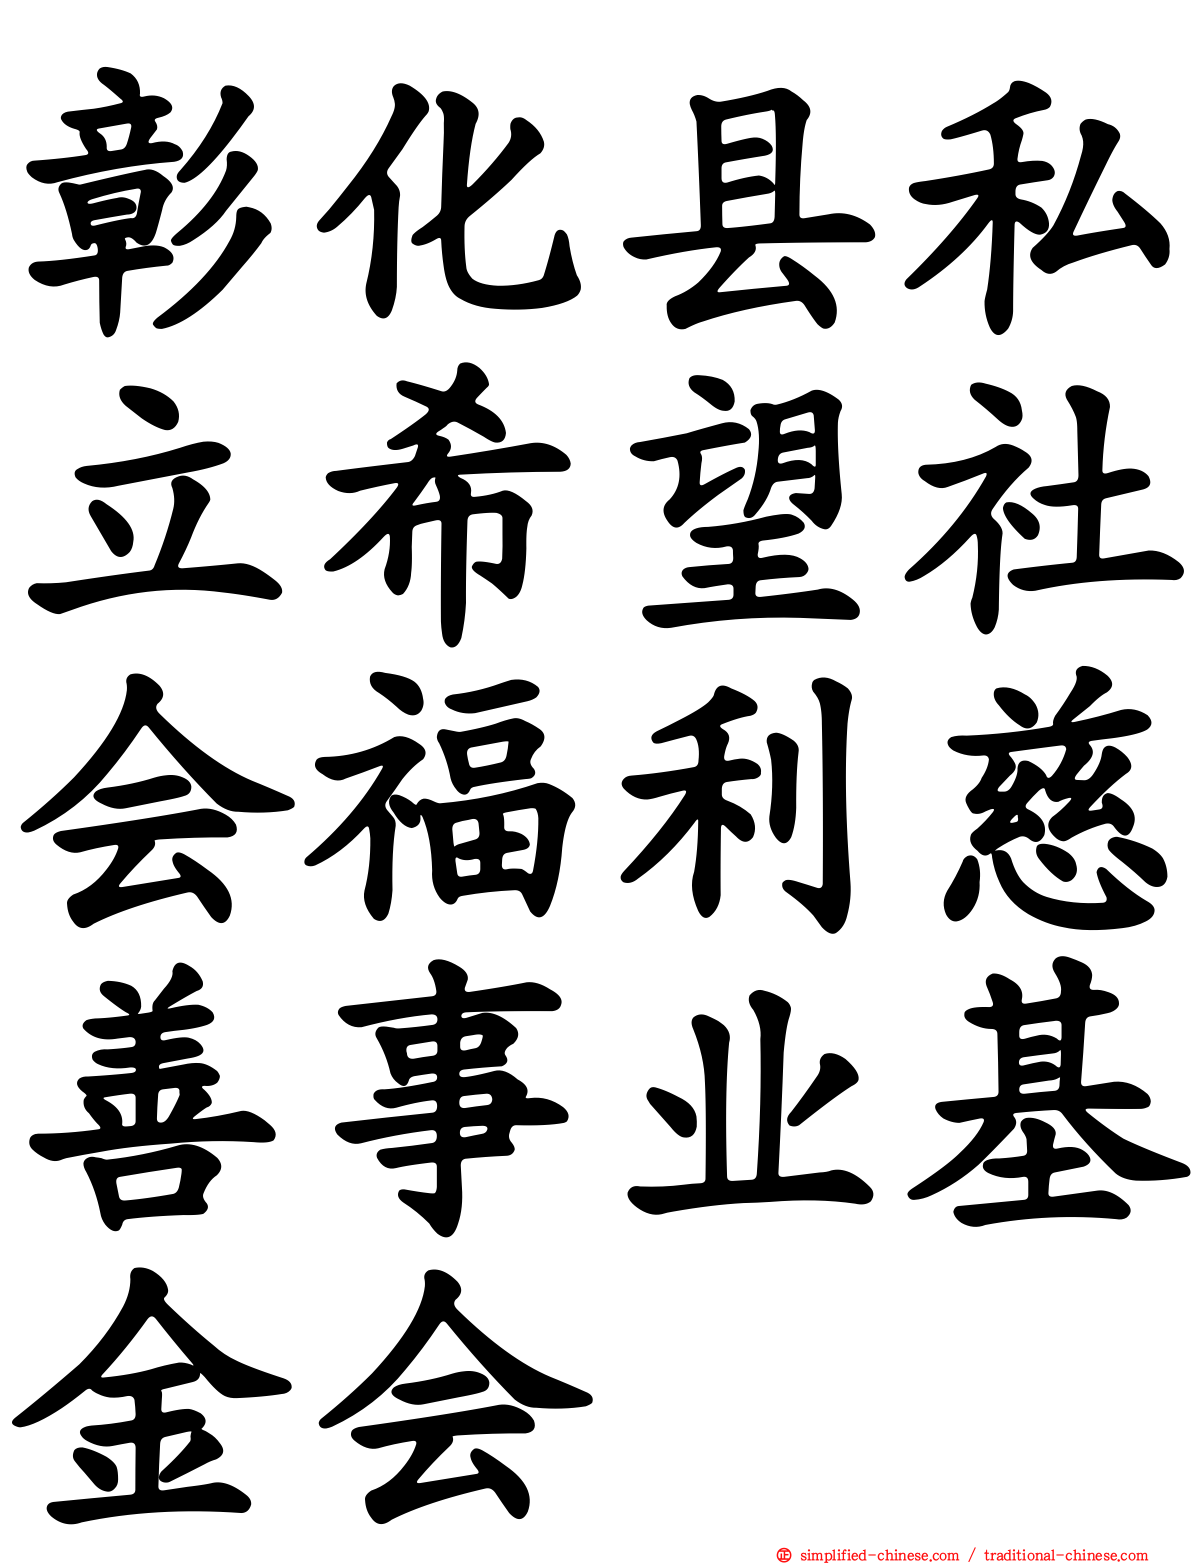 彰化县私
立希望社
会福利慈
善事业基
金会
㊣ simplified-chinese.com / traditional-chinese.com